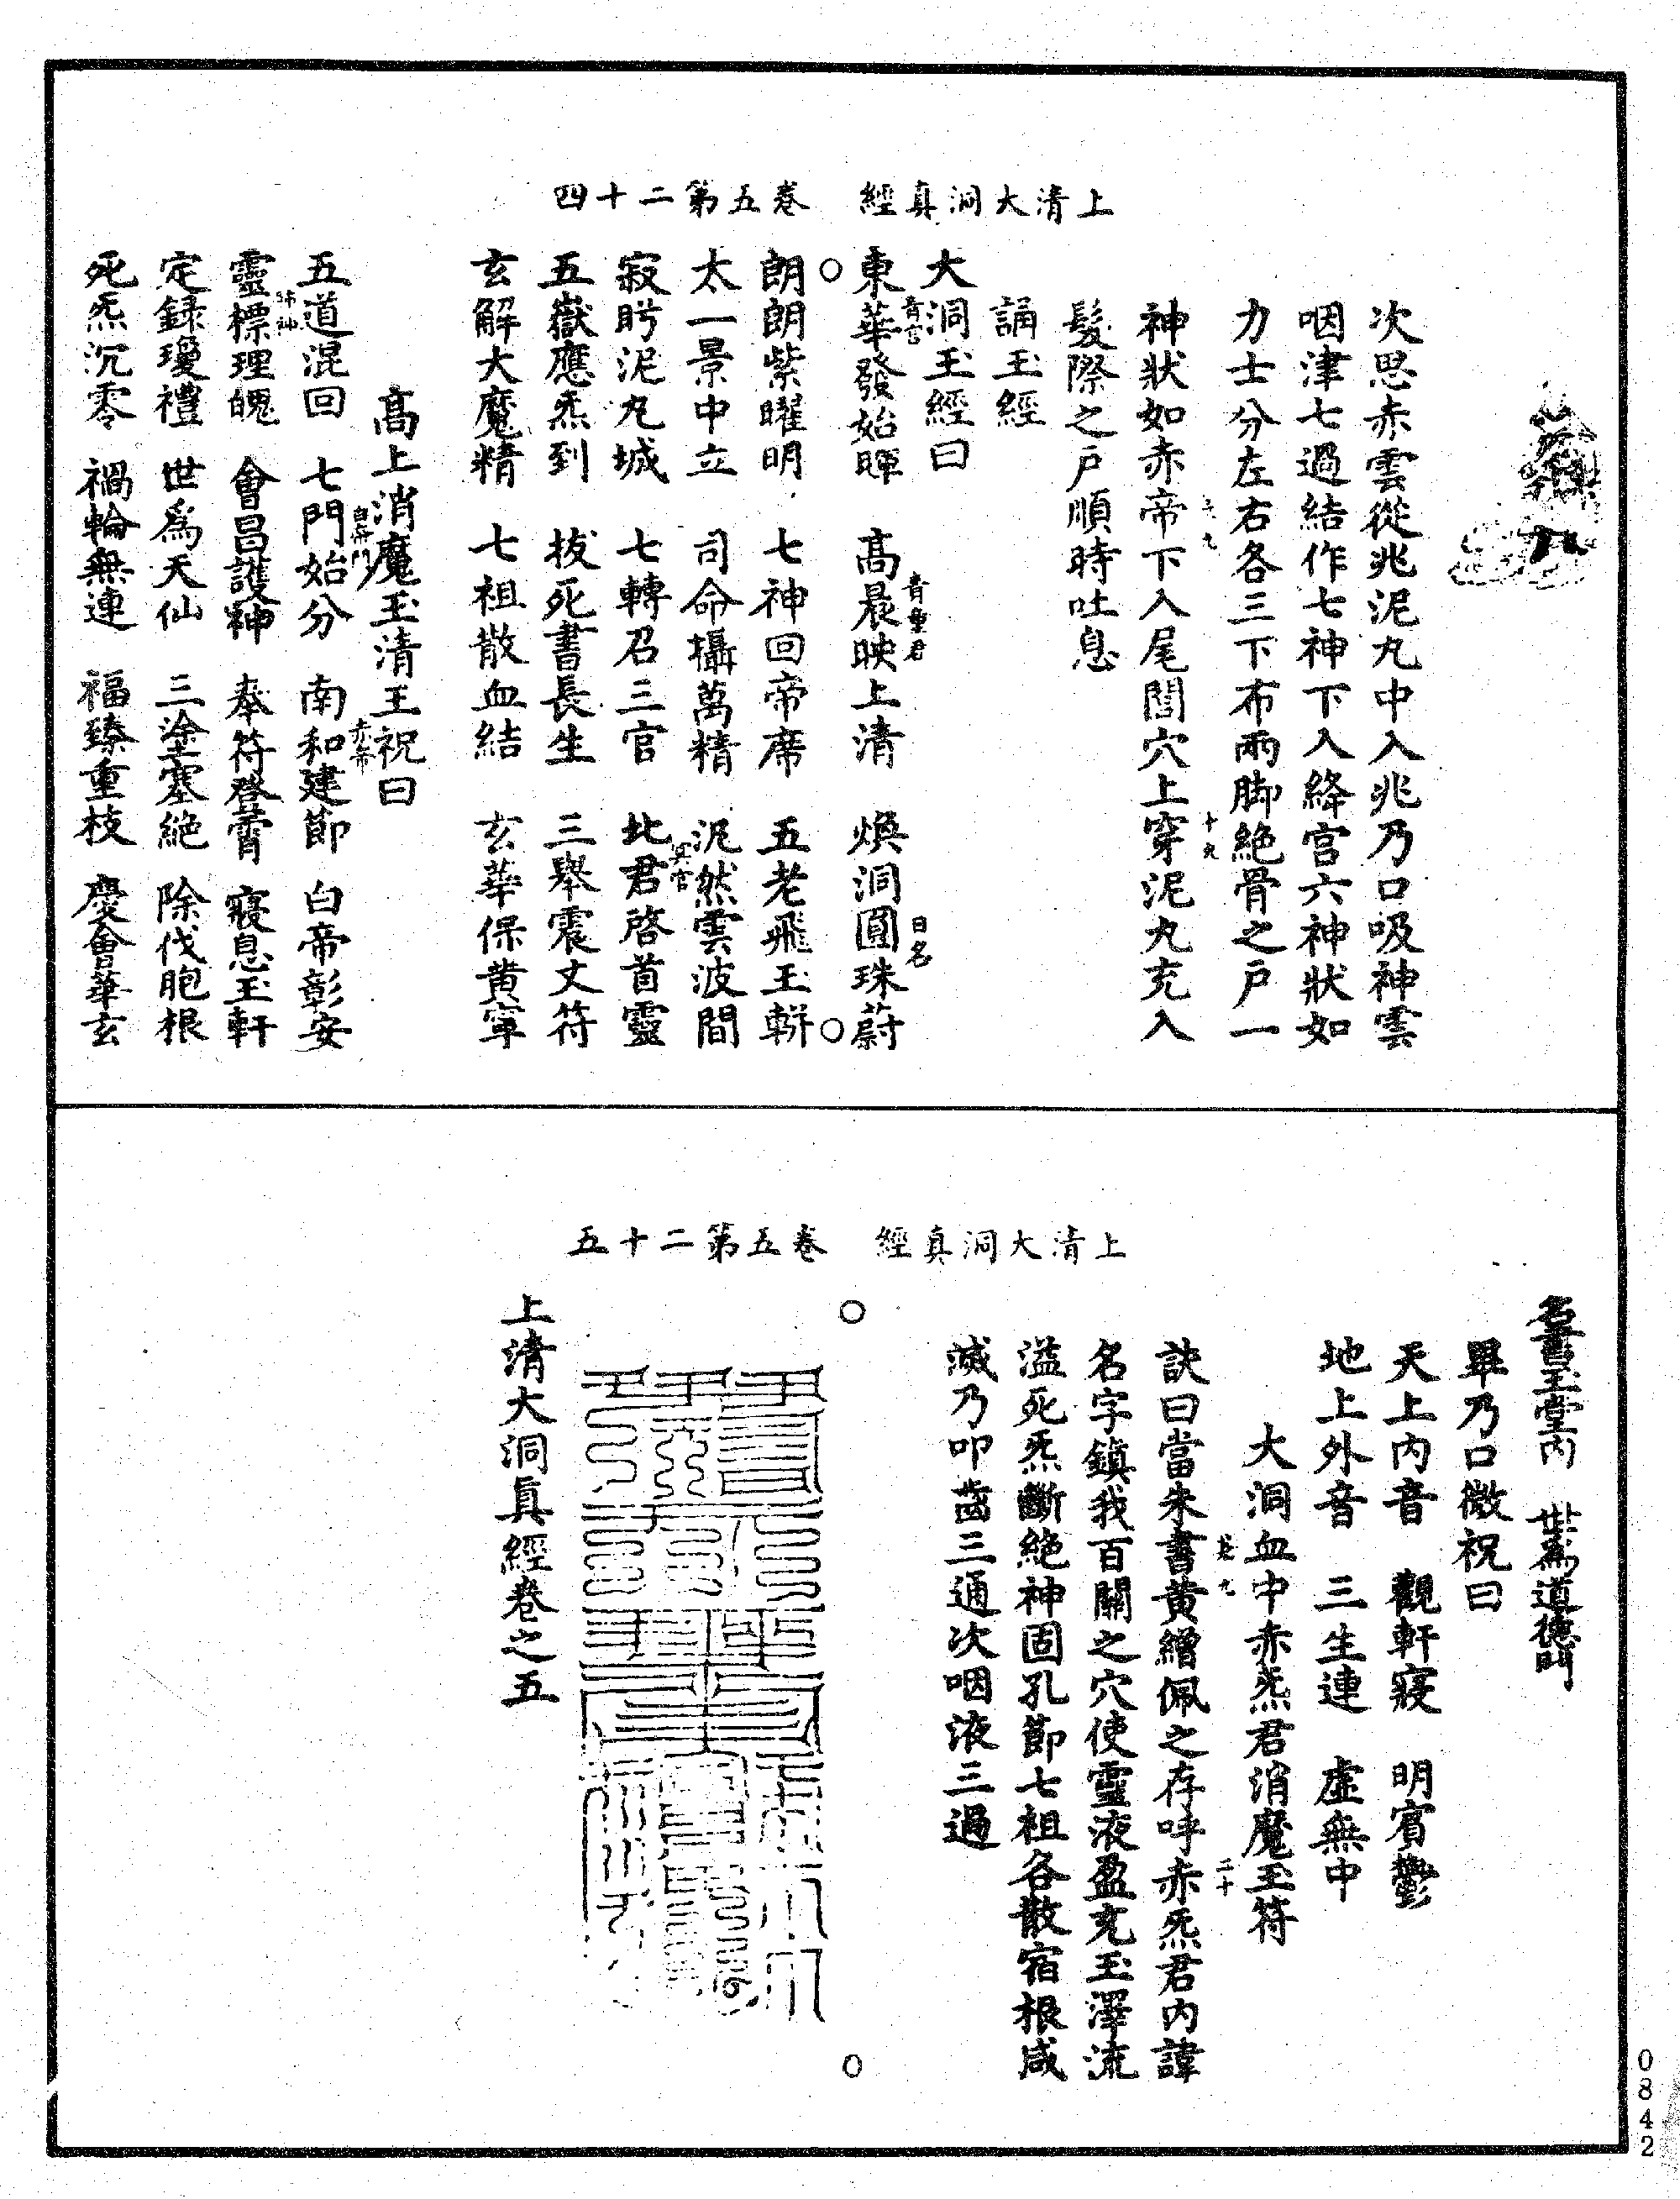 上清大洞真經　卷五第二十四
次思赤雲從兆泥丸中入兆乃口吸神雲
咽津七過結作七神下入絳宮六神狀如
力士分左右各三下布兩脚絶骨之戶一
神狀如赤帝下入尾閭穴上穿泥丸充入
髮際之戶順時吐息
誦玉經
大洞玉經曰
東華發始暉　高晨映上清　煥洞圓珠蔚
青宮　青童君　日名
朗朗紫曜明　七神回帝席　五老飛玉軿
太一景中立　司命攝萬精　泥然雲波間
寂眄泥丸城　七轉召三官　北君啓首靈
冥官
五嶽應炁到　拔死書長生　三舉震文符
玄解大魔精　七祖散血結　玄華保黃寧
高上消魔玉清王祝曰
五道混回　七門始分　南和建節　白帝彰安
白帝門　赤帝
靈標理魄　會昌護神　奉符登霄　寢息玉軒
定録瓊禮　世爲天仙　三塗塞絶　除伐胞根
死炁沉零　禍輪無連　福臻重枝　慶會華玄
上清大洞真經　卷五第二十五
名書玉堂内　世爲道德門
畢乃口微祝曰
天上内音　觀軒寢　明賓鬱
地上外音　三生連　虛無中
大洞血中赤炁君消魔玉符
訣曰當朱書黄繒佩之存呼赤炁君内諱
名字鎮我百關之穴使靈液盈充玉澤流
溢死炁斷絶神固孔節七祖各散宿根咸
滅乃叩齒三通次咽液三過
上清大洞真經卷之五
0842